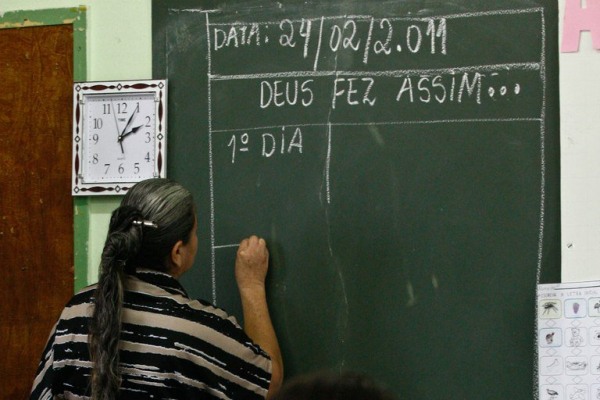 DATA: 24/02/2.011
DEUS FEZ ASSIM...
1º DIA
12
1
2
3
4
5
6
7
8
9
10
11